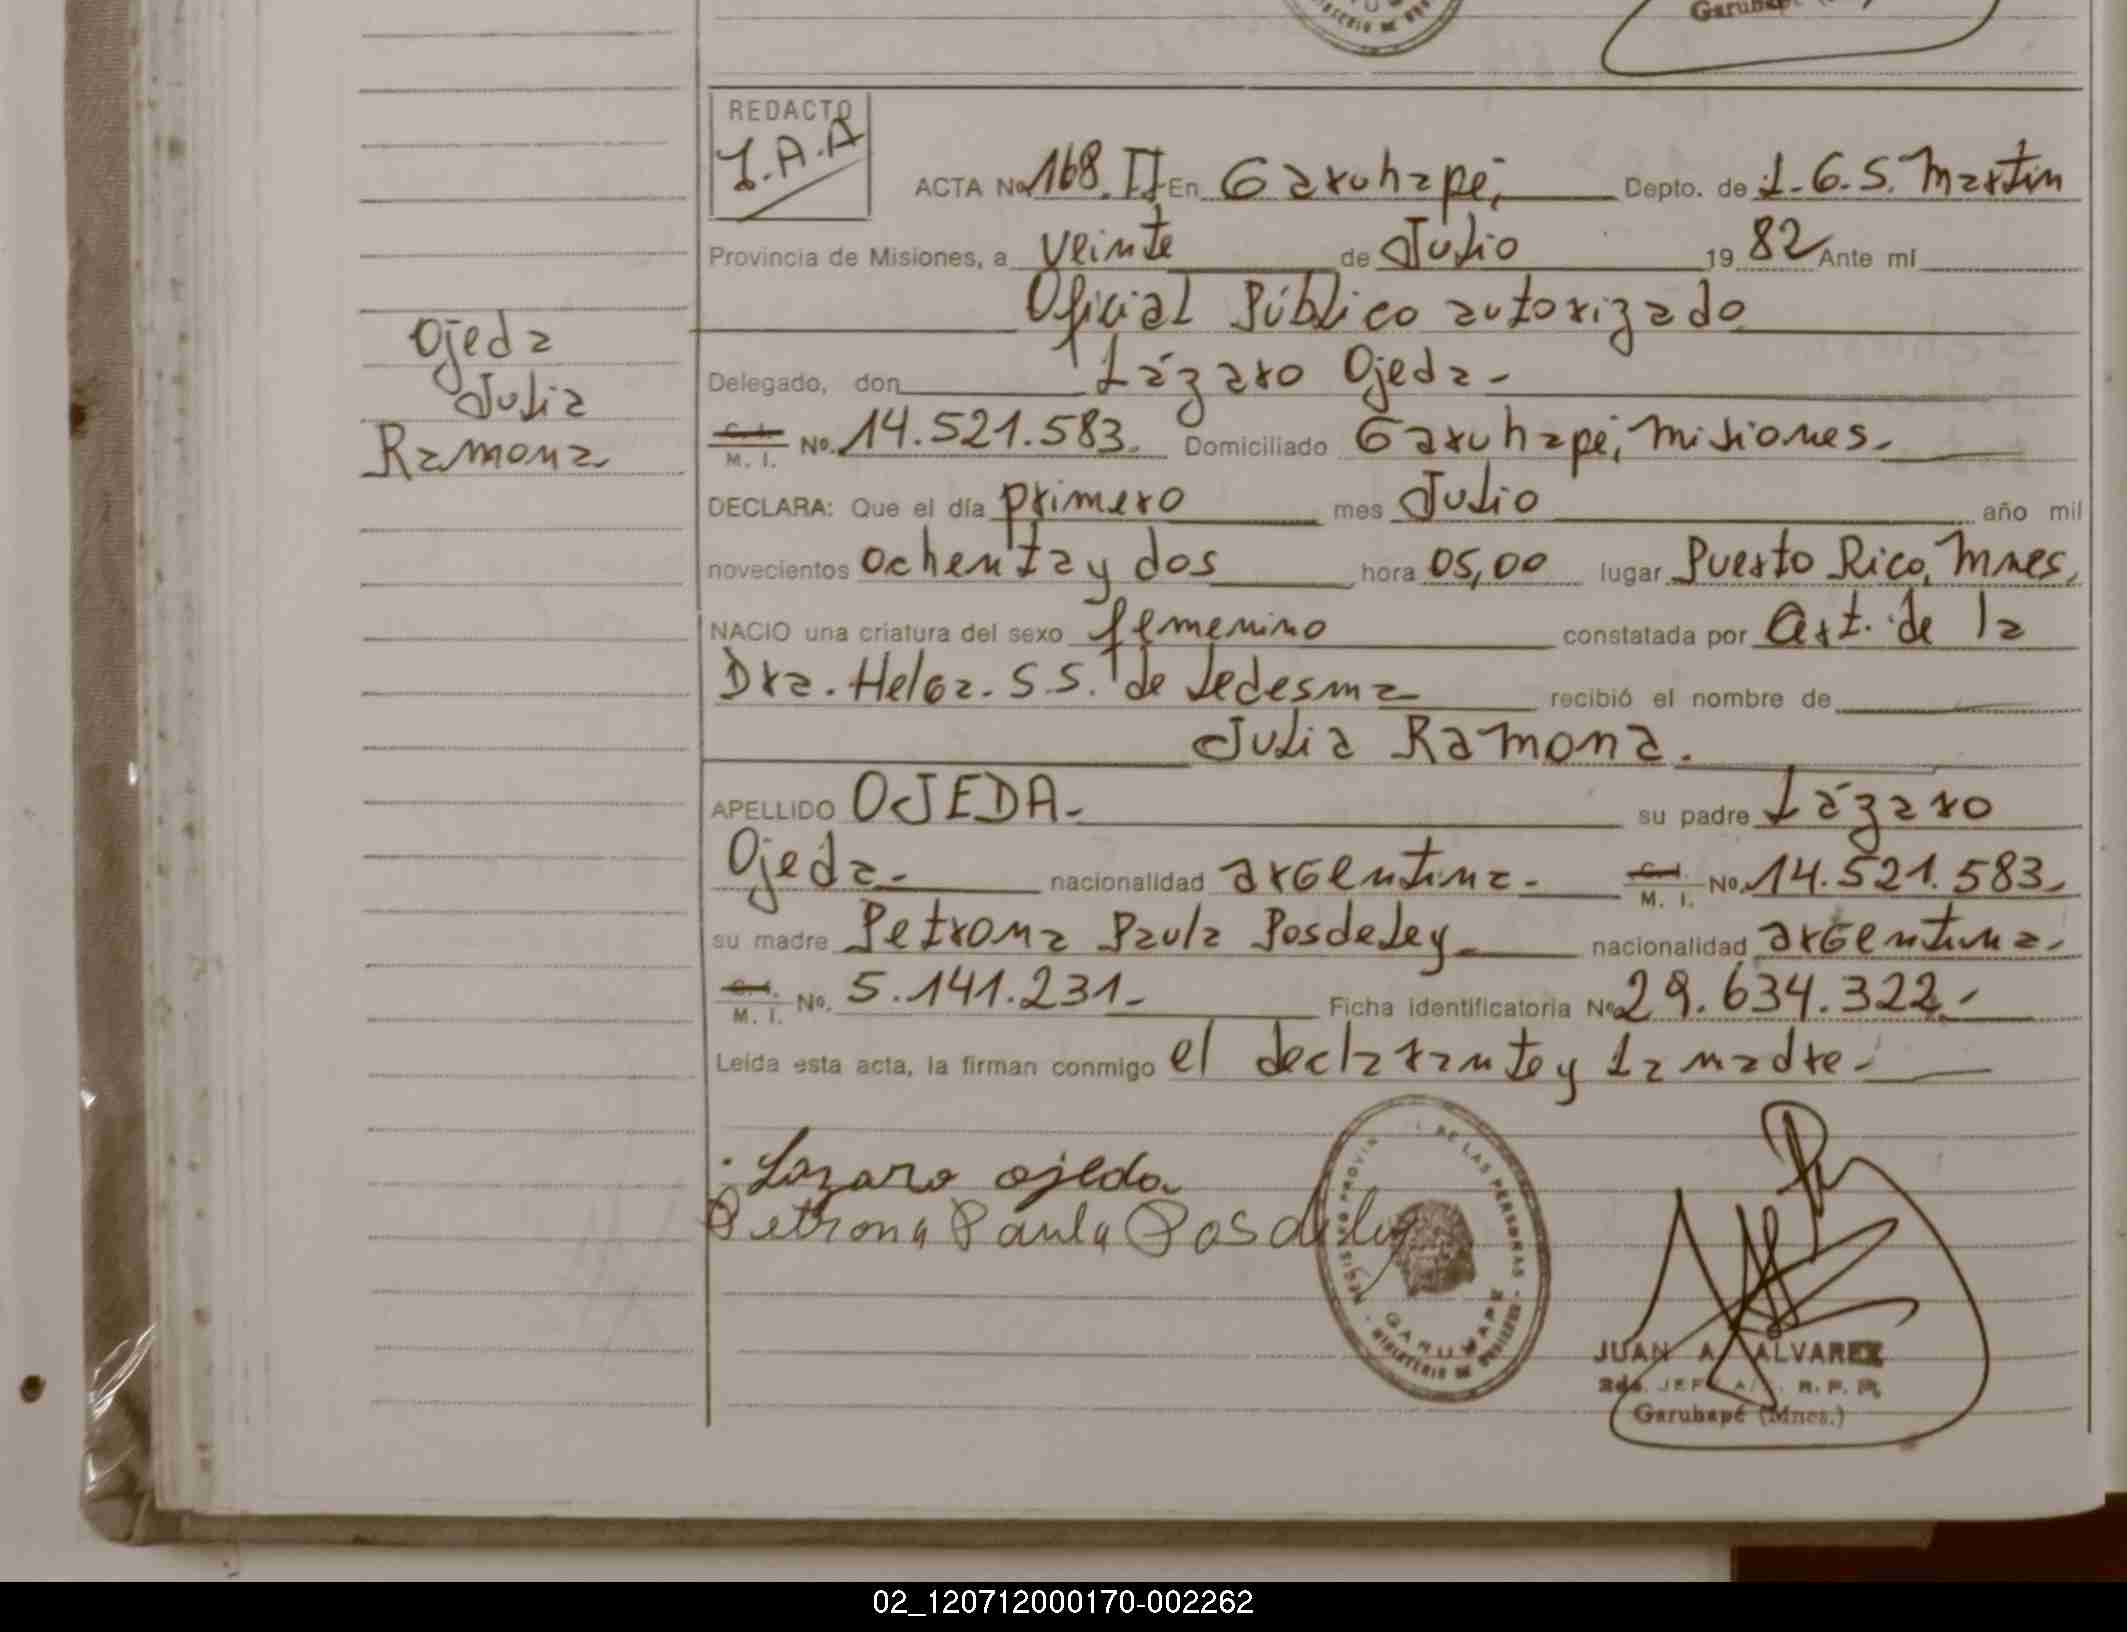 Garuhapé
REDACTO
J.A.A
ACTA No 168. II En Garuhapé, Depto. de L.G.S. Martin
Provincia de Misiones, a veinte de Julio 19 82 Ante mí
Oficial Público autorizado
Delegado, don Lázaro Ojeda-
C. I. M. I. No. 14.521.583. Domiciliado Garuhapé, Misiones.
DECLARA: Que el día primero mes Julio año mil
novecientos ochenta y dos hora 05,00 lugar Puerto Rico, Mnes.
NACIO una criatura del sexo femenino constatada por Cert. de la
Dra. Helga. S.S. de Ledesma recibió el nombre de
Julia Ramona.
APELLIDO OJEDA- su padre Lázaro
Ojeda.- nacionalidad argentina- C. I. M. I. No. 14.521.583.
su madre Petrona Paula Posdeley nacionalidad argentina.
C. I. M. I. No. 5.141.231- Ficha identificatoria No 29.634.322.-
Leída esta acta, la firman conmigo el declarante y la madre-
Ojeda
Julia
Ramona
Lazaro ojeda
Petrona Paula Posdeley
DE LAS PERSONAS
GARUHAPE
JUAN A. ALVAREZ
Garuhapé (Mnes.)
02_120712000170-002262